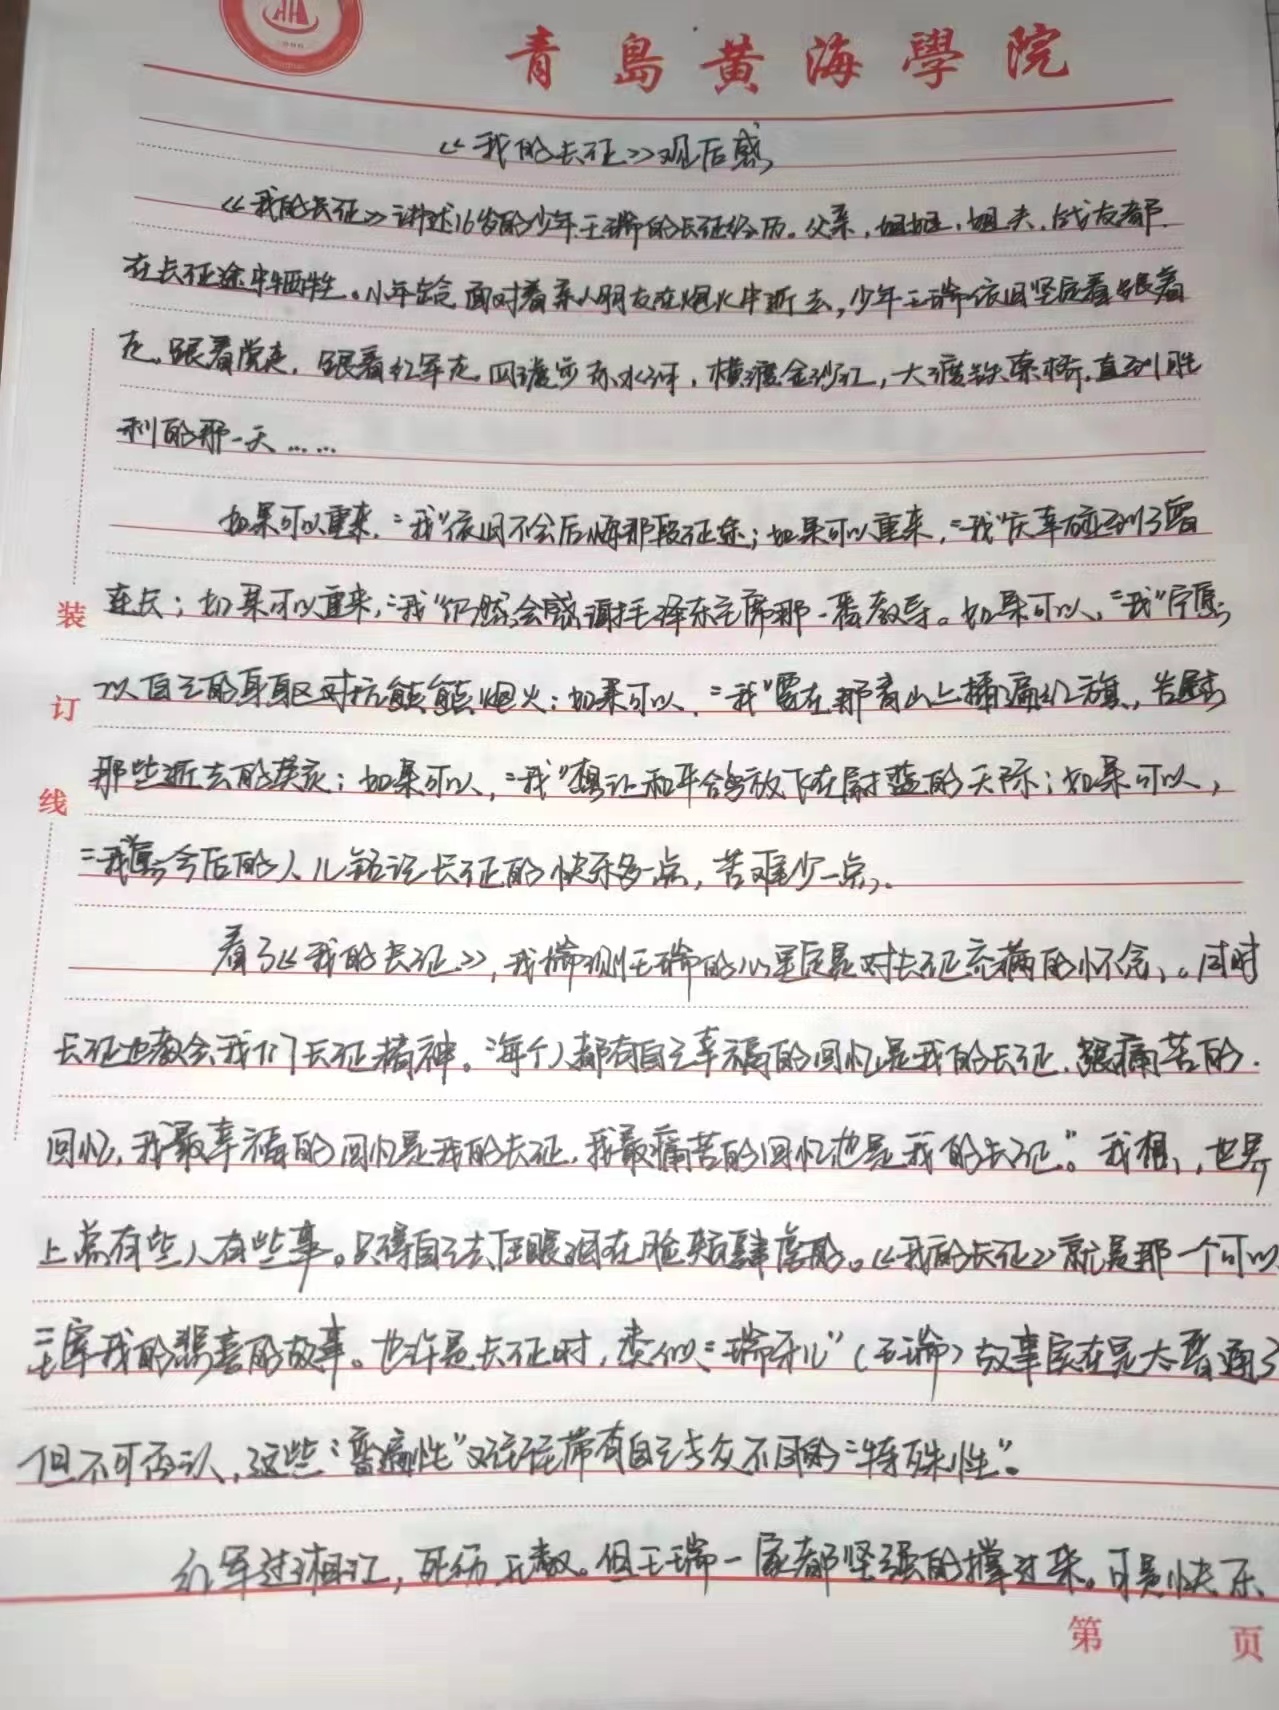 青島黄海學院
《我的长征》观后感
《我的长征》讲述16岁的少年王瑞的长征经历。父亲，姐姐，姐夫，战友都
在长征途中牺牲。小年龄面对着亲人朋友在炮火中逝去，少年王瑞依旧坚定着跟着
走，跟着党走，跟着红军走，四渡赤水河，横渡金沙江，大渡铁索桥，直到胜
利的那一天……
如果可以重来，“我”依旧不会后悔那段征途；如果可以重来，“我”庆幸碰到了曾
连长；如果可以重来，“我”仍然会感谢毛泽东主席那一番教导。如果可以，“我”宁愿
以自己的身躯对抗熊熊炮火；如果可以，“我”要在那青山上插遍红旗，告慰
那些逝去的英灵；如果可以，“我”想让和平鸽放飞在蔚蓝的天际；如果可以，
“我”愿今后的人儿铭记长征的快乐多一点，苦难少一点。
看了《我的长征》，我揣测王瑞的心里定是对长征充满的怀念，。同时
长征也教会我们长征精神。海个人都有自己幸福的回忆是我的长征，跟痛苦的
回忆，我最幸福的回忆是我的长征，我最痛苦的回忆也是我的长征”。我想，世界
上总有些人有些事。只得自己去任眼泪在脸颊肆虐的。《我的长征》就是那一个可以
主宰我的悲喜的故事。也许是长征时，类似“瑞牙儿”（王瑞）故事实在是太普通了
但不可否认，这些“普遍性”又往往带有自己与众不同的“特殊性”。
红军过湘江，死伤无数。但王瑞一家都坚强的撑过来。可是快乐
装
订
线
第 页